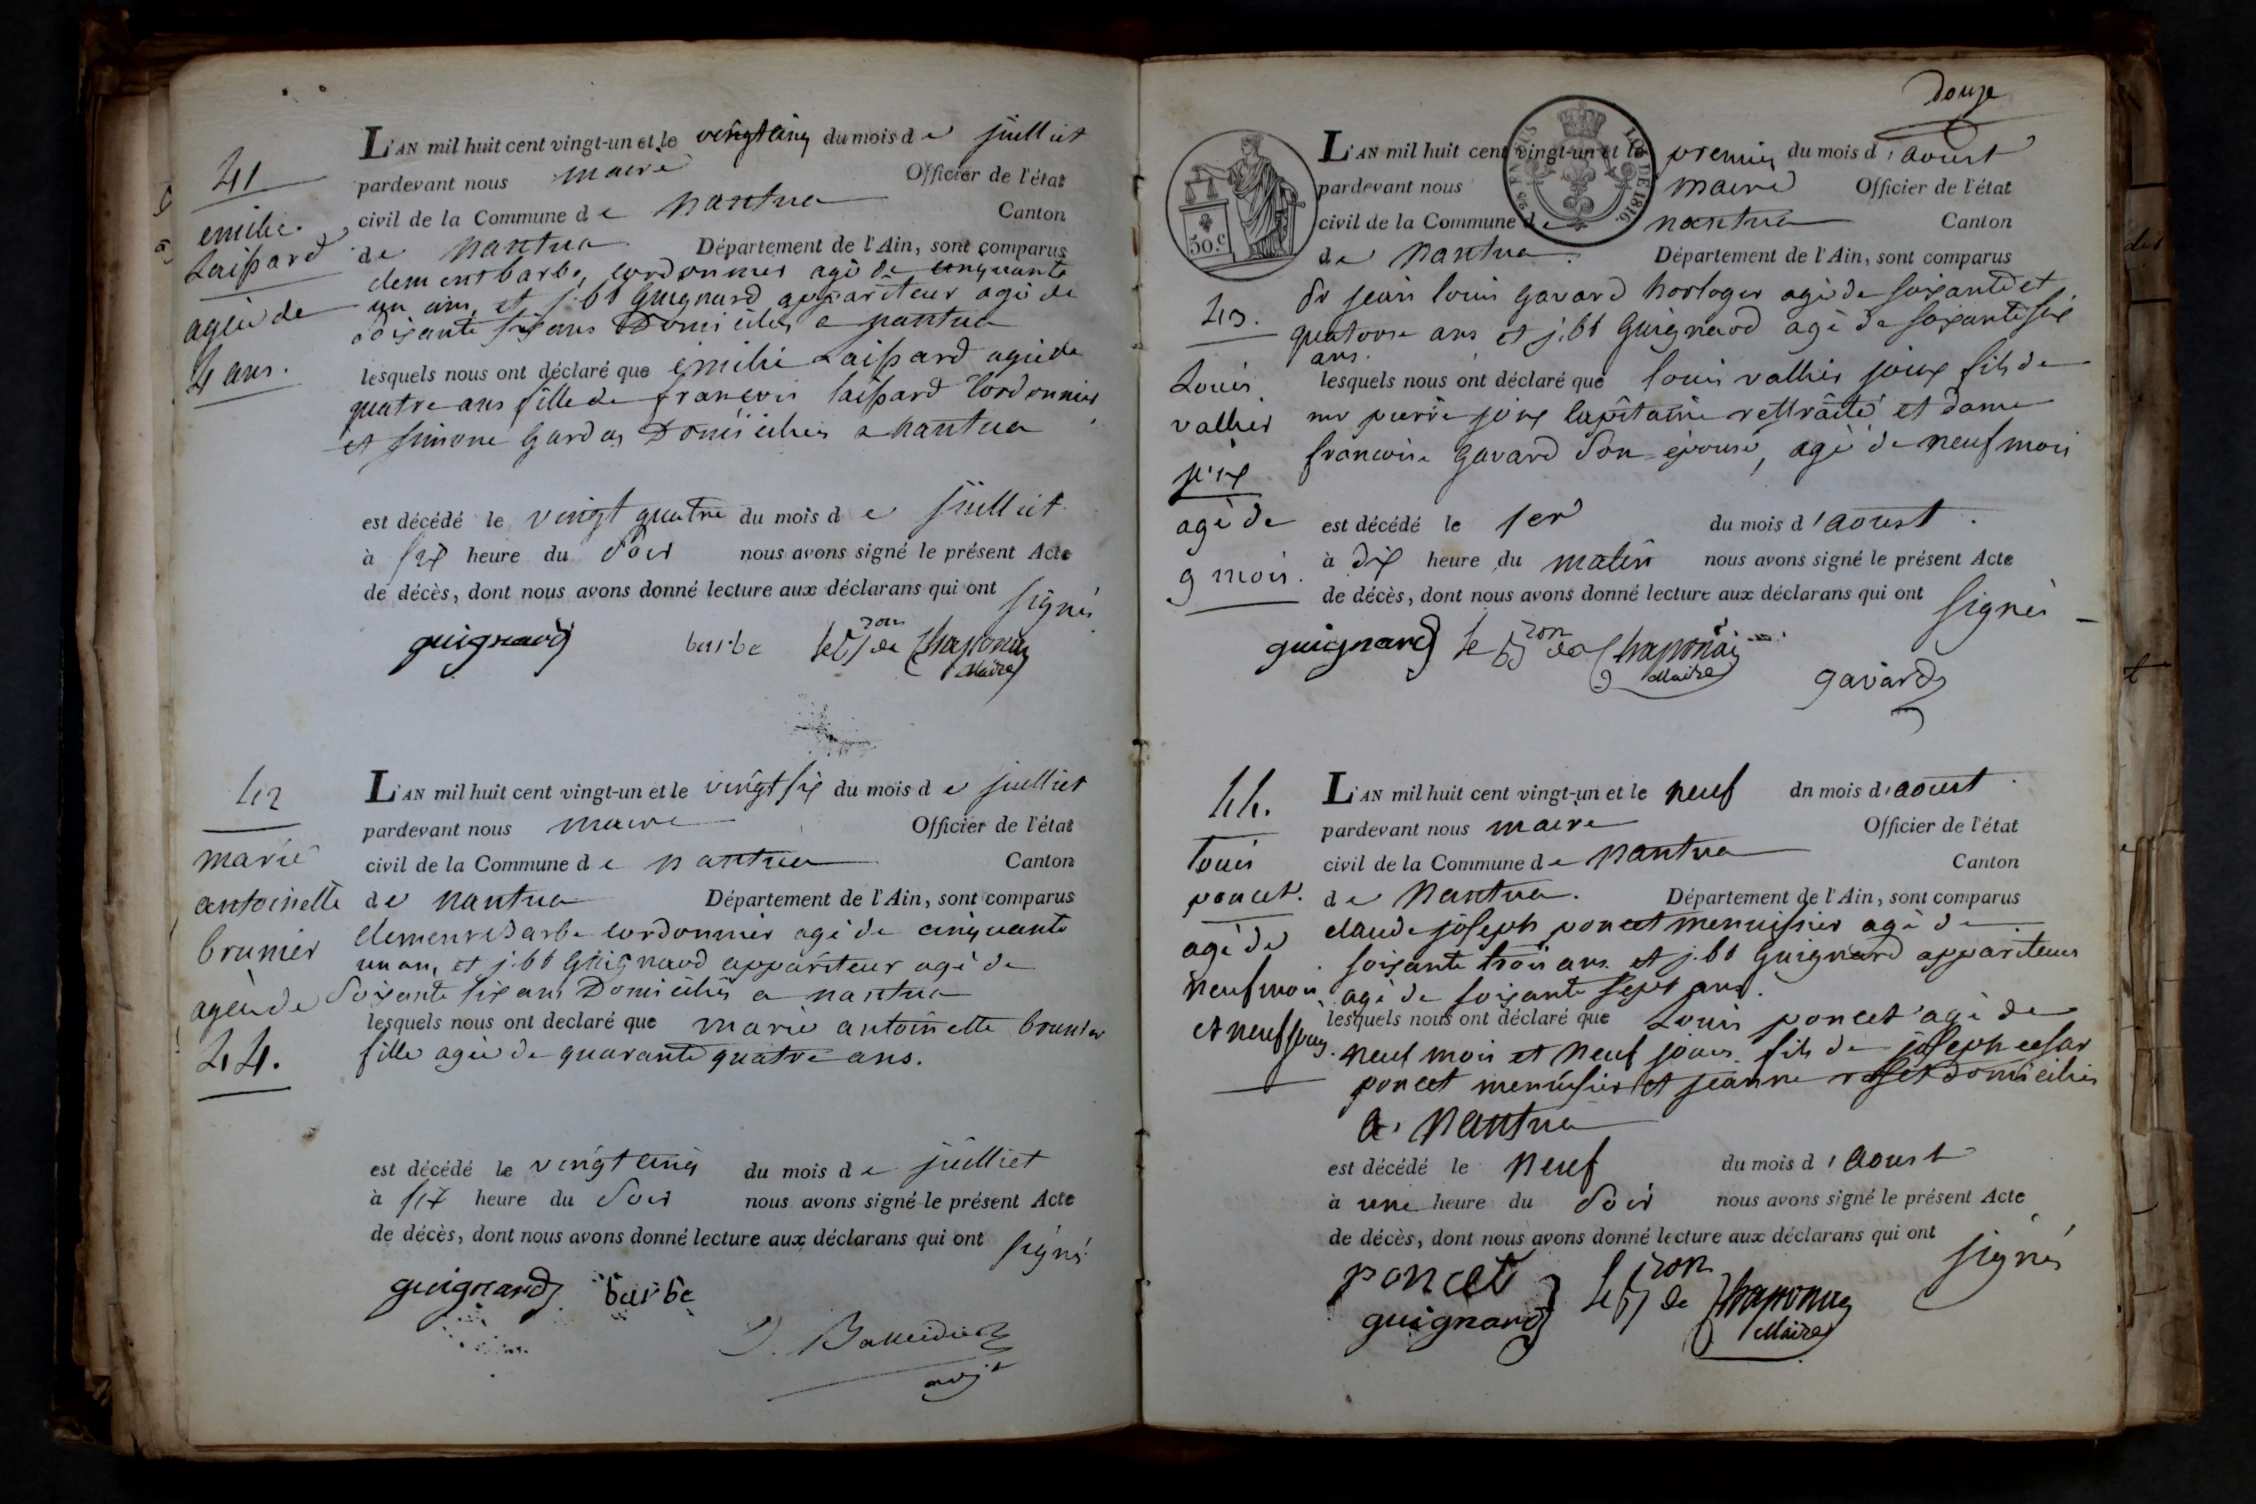 41
emilie
Laissard
agée de
4 ans.
L'AN mil huit cent vingt-un et le vingt cinq du mois de juilliet
pardevant nous maire Officier de l'état
civil de la Commune de nantua Canton
de nantua Département de l'Ain, sont comparus
clement barbe, cordonnier agé de cinquante
un ans, et j. bt Guignard appariteur agé de
soixante six ans Domiciliés a nantua
lesquels nous ont déclaré que emilie Laissard agée de
quatre ans fille de francois laissard Cordonnier
et simone Gardas Domiciliés a nantua
est décédé le vingt quatre du mois de juilliet
à six heure du soir nous avons signé le présent Acte
de décès, dont nous avons donné lecture aux déclarans qui ont signés
guignard barbe le Bon de Chaponay
Maire
42
marie
antoinette
brunier
agée de
44.
L'AN mil huit cent vingt-un et le vingt six du mois de juilliet
pardevant nous maire Officier de l'état
civil de la Commune de nantua Canton
de nantua Département de l'Ain, sont comparus
clement Barbe cordonnier agé de cinquante
un an, et j. bt Guignard appariteur agé de
Soixante six ans Domiciliés a nantua
lesquels nous ont declaré que marie antoinette brunier
fille agée de quarante quatre ans.
est décédé le vingt cinq du mois de juilliet
à six heure du soir nous avons signé le présent Acte
de décès, dont nous avons donné lecture aux déclarans qui ont signé
guignard barbe
adjt
Douze
50.c
LOI DE 1816.
43.
Louis
vallier
joux
agé de
9 mois.
L'AN mil huit cent vingt-un et le premier du mois d'aoust
pardevant nous maire Officier de l'état
civil de la Commune de nantua Canton
de Nantua. Département de l'Ain, sont comparus
Sr jean louis gavard horloger agé de soixante et
quatorse ans et j. bt Guignard agé de soixante six
ans.
lesquels nous ont déclaré que louis vallier joux fils de
mr pierre joux Capitaine rettraité et dame
francoise gavard Son epouse, agé de neuf mois
est décédé le 1er du mois d'aoust.
à dix heure du matin nous avons signé le présent Acte
de décès, dont nous avons donné lecture aux déclarans qui ont signés
guignard le Bon de Chaponay
Maire
gavard
44.
Louis
poncet.
agé de
neuf mois
et neuf jours.
L'AN mil huit cent vingt-un et le neuf dn mois d'aoust
pardevant nous maire Officier de l'état
civil de la Commune de Nantua Canton
de Nantua. Département de l'Ain, sont comparus
claude joseph poncet menuisier agé de
soixante trois ans et j. bt Guignard appariteur
agé de soixante sept ans.
lesquels nous ont déclaré que Louis poncet agé de
neuf mois et neuf jours fils de joseph cesar
poncet menuisier et jeanne rosset domiciliés
a Nantua
est décédé le Neuf du mois d'aoust
à une heure du Soir nous avons signé le présent Acte
de décès, dont nous avons donné lecture aux déclarans qui ont signés
poncet le Bon de Chaponay
guignard Maire